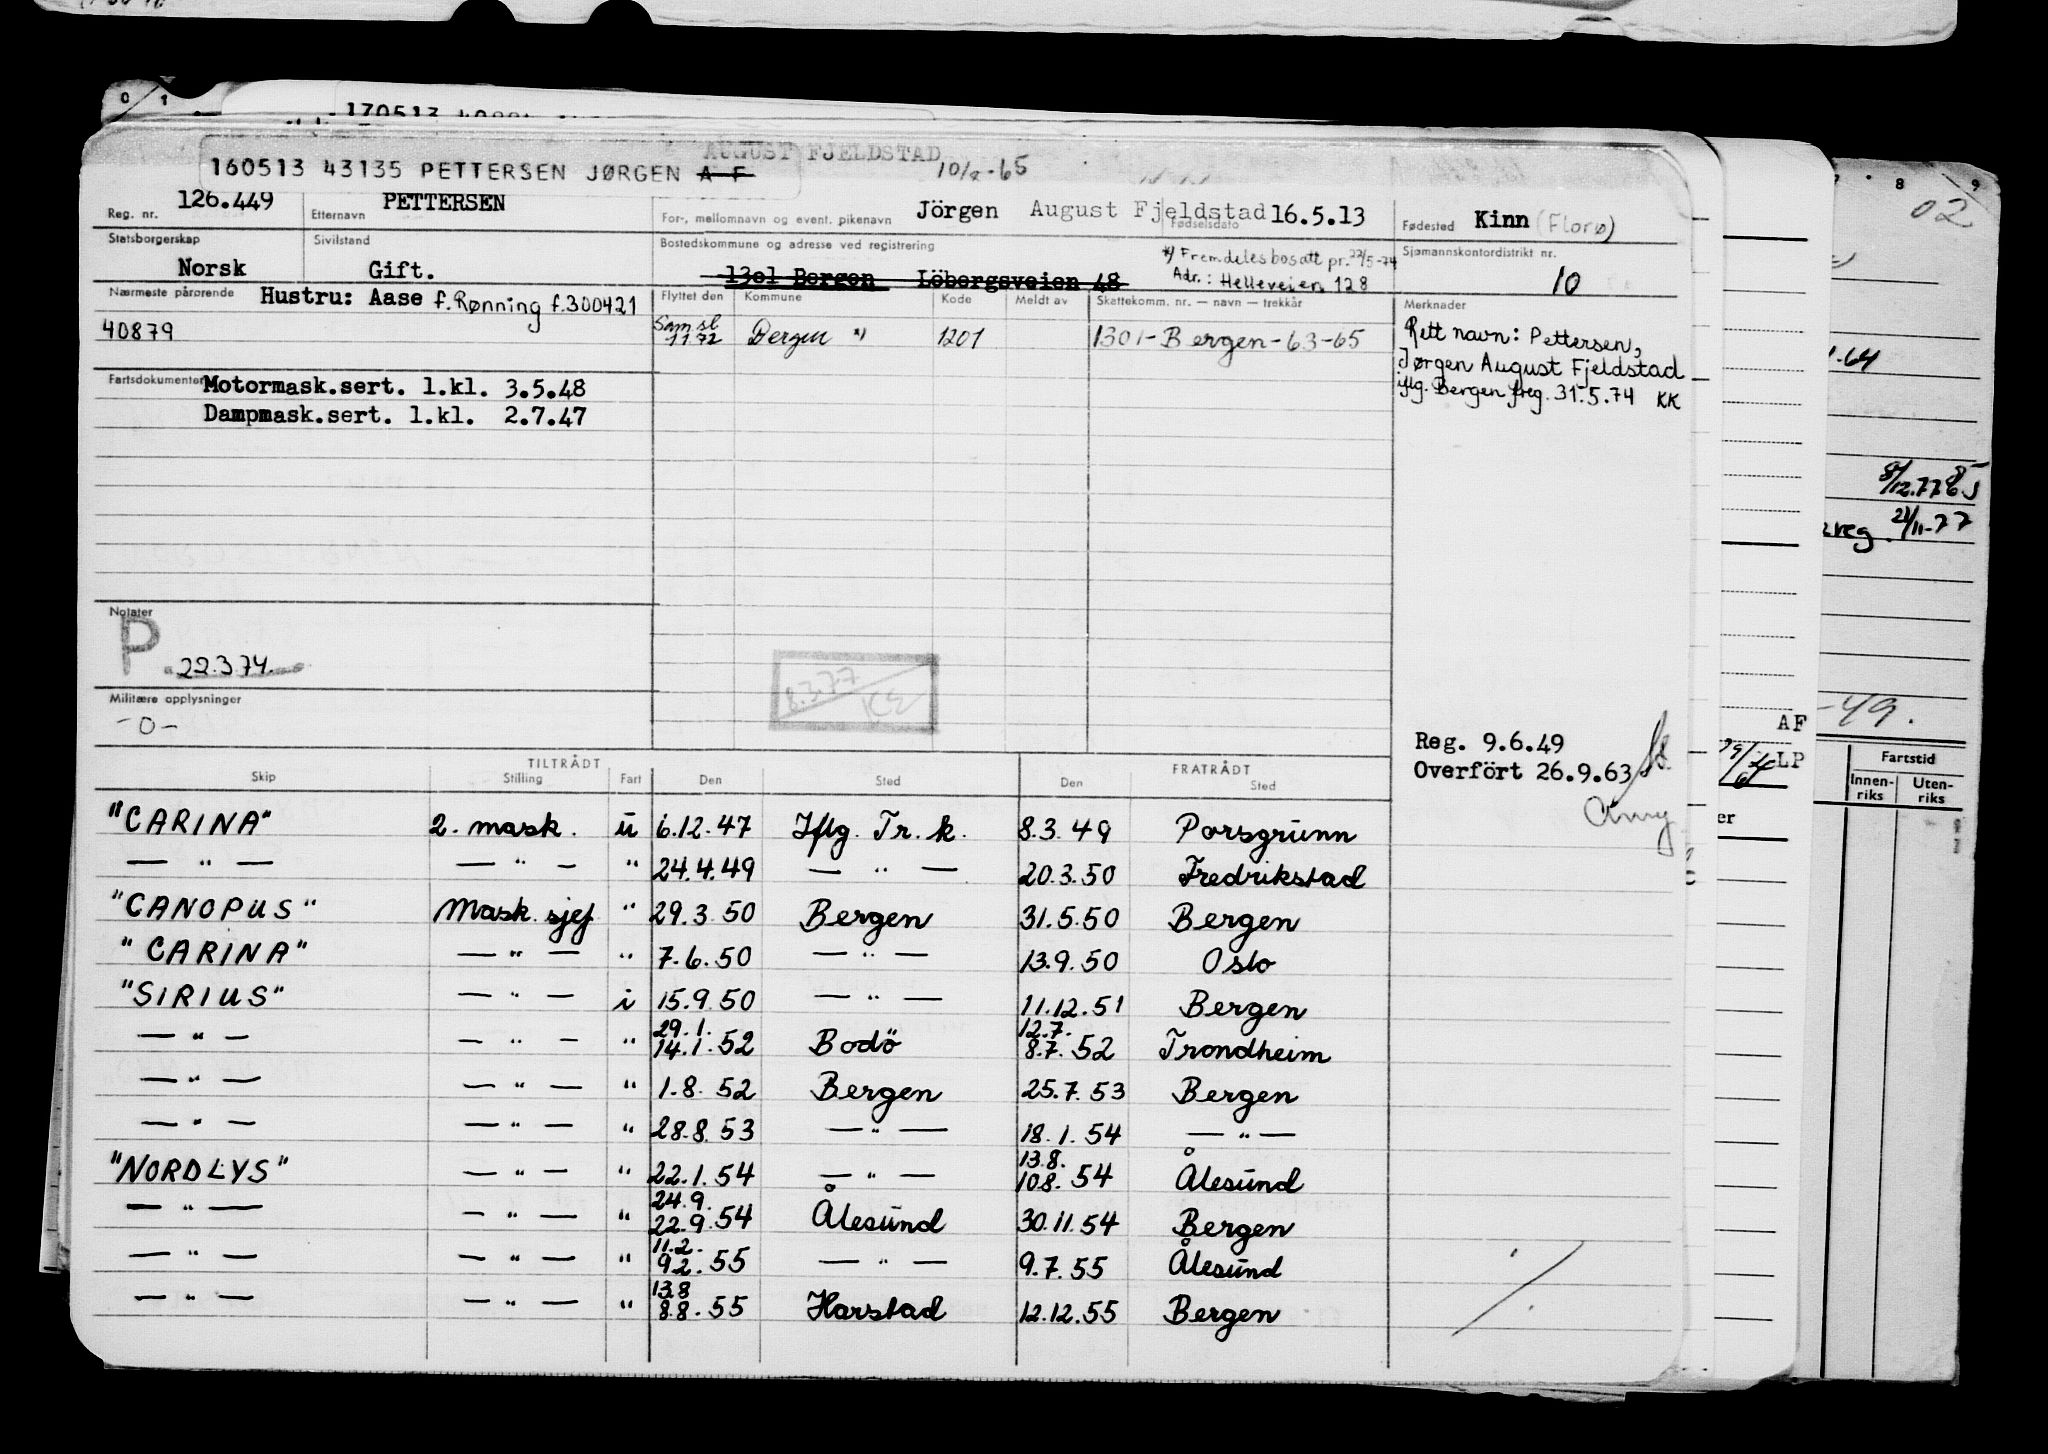 170513
0 1
AUGUST FJELDSTAD
160513 43135 PETTERSEN JØRGEN A F 10/2-65
Reg. nr. 126.449 Etternavn PETTERSEN For-, mellomnavn og event. pikenavn Jörgen August Fjeldstad Fødselsdato 16.5.13 Fødested Kinn (Florø)
Statsborgerskap Sivilstand Bostedskommune og adresse ved registrering Sjømannskontordistrikt nr.
*) Fremdeles bosatt pr. 22/5-74
Norsk Gift. 1301 Bergen Löbergsveien 48 Adr.: Helleveien 128 10
Nærmeste pårørende Hustru: Aase f. Rønning f.300421 Flyttet den Kommune Kode Meldt av Skattekomm. nr. — navn — trekkår Merknader
40879 Sam.sl. 1172 Bergen *) 1201 1301-Bergen-63-65 Rett navn: Pettersen,
Jørgen August Fjeldstad
iflg. Bergen freg. 31.5.74 KK
Fartsdokumenter Motormask.sert. 1.kl. 3.5.48
Dampmask.sert. 1.kl. 2.7.47
Notater
P. 22.3.74.
8.3.77
KE
Militære opplysninger
-0-
Reg. 9.6.49
Overfört 26.9.63
TILTRÅDT FRATRÅDT
Skip Stilling Fart Den Sted Den Sted
"CARINA" 2. mask. u 6.12.47 Iflg. Tr. k. 8.3.49 Porsgrunn
— " — — " — " 24.4.49 — " — 20.3.50 Fredrikstad
"CANOPUS" Mask. sjef " 29.3.50 Bergen 31.5.50 Bergen
"CARINA" — " — " 7.6.50 — " — 13.9.50 Oslo
"SIRIUS" — " — i 15.9.50 — " — 11.12.51 Bergen
29.1. 12.7.
— " — — " — " 14.1.52 Bodö 8.7.52 Trondheim
— " — — " — " 1.8.52 Bergen 25.7.53 Bergen
— " — — " — " 28.8.53 — " — 18.1.54 — " —
13.8.
"NORDLYS" — " — " 22.1.54 — " — 10.8.54 Ålesund
24.9.
— " — — " — " 22.9.54 Ålesund 30.11.54 Bergen
11.2.
— " — — " — " 9.2.55 — " — 9.7.55 Ålesund
13.8
— " — — " — " 8.8.55 Harstad 12.12.55 Bergen
8 9
02
.64
8/12.77
reg 21/11-77
-49.
AF
LP
er
Fartstid
Innen-
riks
Uten-
riks